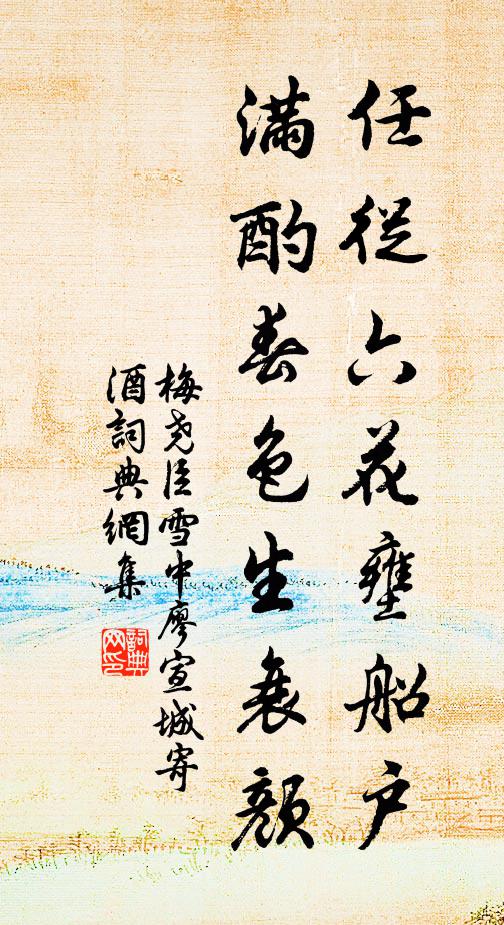 任從六花壅船户
滿酌春色生衰顔
梅尧臣雪中廖宣城寄
酒詞典網集
詞典网印